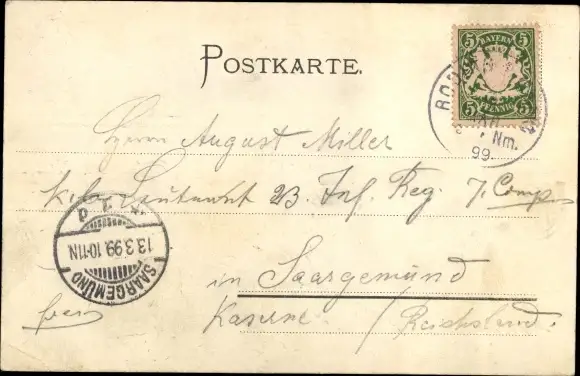 POSTKARTE.
5 BAYERN 5
5 PFENNIG 5
Nm.
99.
Herrn August Miller
k. b. Leutnant 23 Inf. Reg. 7. Comp
13.3.99.10-11N.
SAARGEMÜND
in Saargemünd
Kaserne / Reichsland.